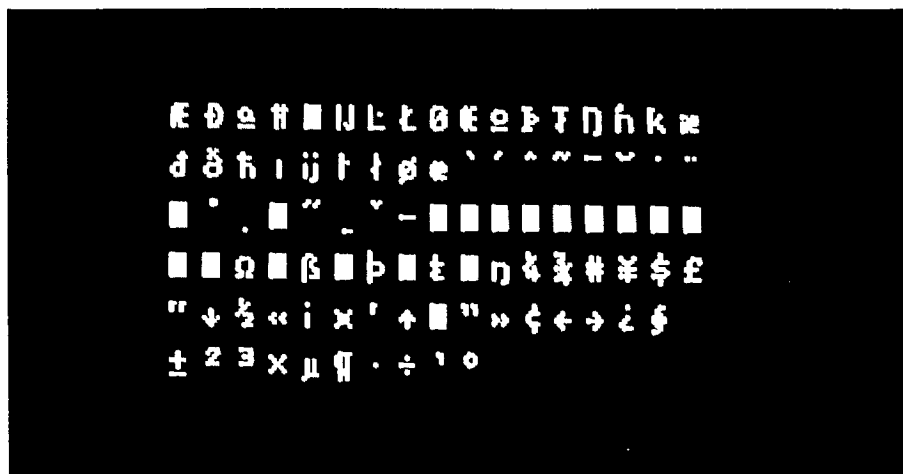 Æ Đ ª Ħ ■ IJ Ŀ Ł Ø Œ º Þ Ŧ Ŋ ŉ ĸ æ
đ ð ħ ı ij ŀ ł ø œ ` ´ ^ ~ ¯ ˘ ˙ ¨
■ ˚ ¸ ■ ˝ ˛ ˇ — ■ ■ ■ ■ ■ ■ ■ ■ ■
■ ■ Ω ■ ß ■ þ ■ ŧ ■ ŋ ¼ ¾ # ¥ $ £
“ ↓ ½ « ¡ ¤ ‘ ↑ ■ ” » ¢ ← → ¿ §
± ² ³ × µ ¶ · ÷ ’ °